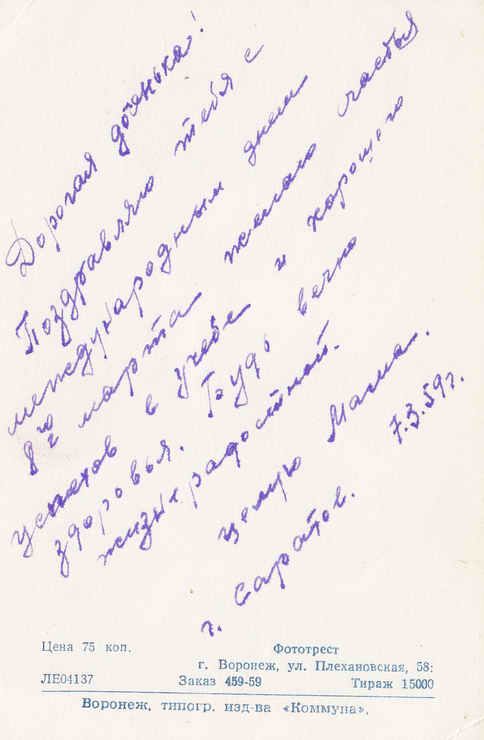 Дорогая доченька!
Поздравляю тебя с
международным днем
8го марта желаю счастья
успехов в учебе и хорошего
здоровья. Будь вечно
жизнерадостной.
целую Мама.
г. Саратов. 7.3.59г.
Цена 75 коп. Фототрест
г. Воронеж, ул. Плехановская, 58:
ЛЕ04137 Заказ 459-59 Тираж 15000
Воронеж, типогр. изд-ва «Коммуна».